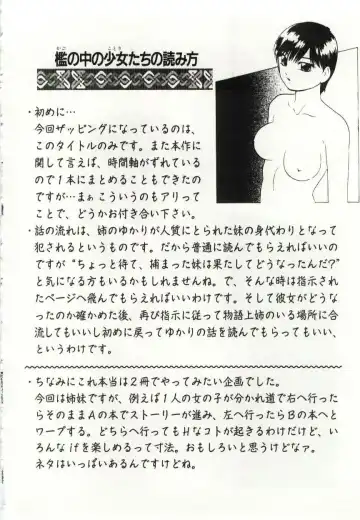 檻の中の少女たちの読み方
かご
ことり
・初めに…
今回ザッピングになっているのは、
このタイトルのみです。また本作に
関して言えば、時間軸がずれている
ので1本にまとめることもできたの
ですが…まぁこういうのもアリってこ
とで、どうかお付き合い下さい。
・話の流れは、姉のゆかりが人質にとられた妹の身代わりとなって
犯されるというものです。だから普通に読んでもらえればいいので
すが“ちょっと待て、捕まった妹は果たしてどうなったんだ?”
と気になる方もいるかもしれませんね。で、そんな時は指示され
たページへ飛んでもらえればいいわけです。そして彼女がどうな
ったのか確かめた後、再び指示に従って物語上姉のいる場所に合
流してもいいし初めに戻ってゆかりの話を読んでもらってもいい、
というわけです。
・ちなみにこれ本当は2冊でやってみたい企画でした。
今回は姉妹ですが、例えば1人の女の子が分かれ道で右へ行った
らそのままAの本でストーリーが進み、左へ行ったらBの本へと
ワープする。どちらへ行ってもHなコトが起きるわけだけど、い
ろんなifを楽しめるって寸法。おもしろいと思うけどなァ。
ネタはいっぱいあるんですけどね。